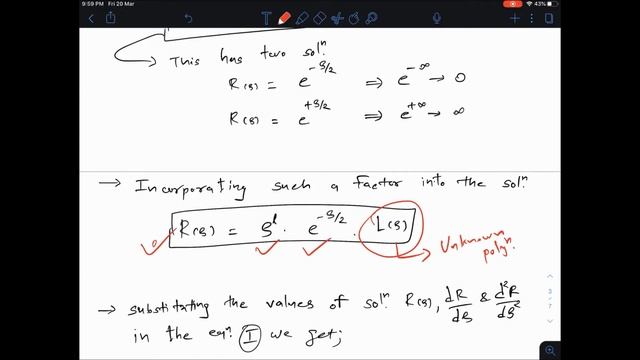 9:59 PM Fri 20 Mar
43%
→ This has two solⁿ.
R(ρ) = e^{-ρ/2} ⟹ e^{-∞} → 0
R(ρ) = e^{+ρ/2} ⟹ e^{+∞} → ∞
→ Incorporating such a factor into the solⁿ.
R(ρ) = ρ^l . e^{-ρ/2} . L(ρ)
→ Unknown
polyⁿ.
→ substitating the values of solⁿ. R(ρ), dR/dρ & d²R/dρ²
in the eqⁿ. (I) we get;
3
/
7